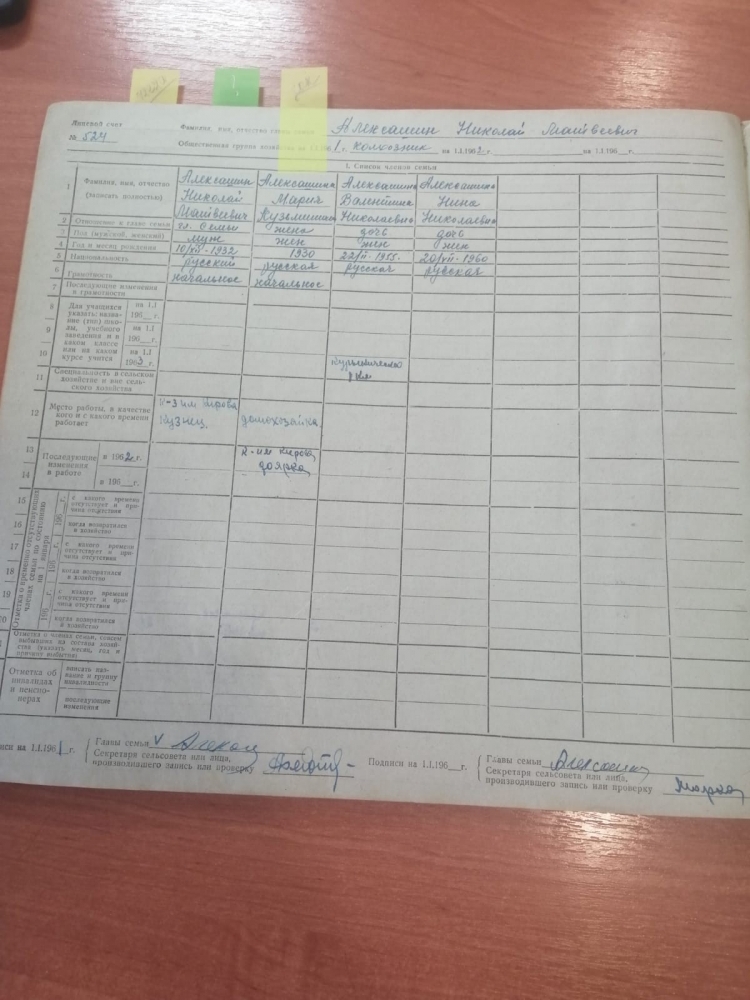 Лицевой счет
№ 527
Фамилия, имя, отчество главы семьи Алексашин Николай Матвеевич
Общественная группа хозяйства на 1.I.1961 г. колхозник на 1.I.1962 г. на 1.I.196 г.
I. Список членов семьи
1 Фамилия, имя, отчество (записать полностью) Алексашин Николай Матвеевич Алексашина Мария Кузьминич Алексашина Валентина Николаевна Алексашина Нина Николаевна
2 Отношение к главе семьи гл. семьи жена дочь дочь
3 Пол (мужской, женский) муж жен жен жен
4 Год и месяц рождения 10/VII-1932 1930 22/II-1955 20/VII-1960
5 Национальность русский русская русская русская
6 Грамотность начальное начальное
7 Последующие изменения в грамотности
8 Для учащихся указать: название (тис) школы, учебного заведения и в каком классе или на каком курсе учится на 1.I 196 г.
9 на 1.I 196 г.
10 на 1.I 1963 г.
11 Специальность в сельском хозяйстве и вне сельского хозяйства
12 Место работы, в качестве кого и с какого времени работает к-з им Кирова Кузнец домохозяйка
13 Последующие изменения в работе в 1962 г. к-им Кирова доярка
14 в 196 г.
Отметка о временно отсутствующих членах семьи по состоянию на 1 января
15 196 г. с какого времени отсутствует и причина отсутствия
16 когда возвратился в хозяйство
17 196 г. с какого времени отсутствует и причина отсутствия
18 когда возвратился в хозяйство
19 196 г. с какого времени отсутствует и причина отсутствия
20 когда возвратился в хозяйство
Отметка о членах семьи, совсем выбывших из состава хозяйства (указать месяц, год и причину выбытия)
Отметка об инвалидах и пенсионерах вписать название и группу инвалидности
последующие изменения
писи на 1.I.1961 г. Главы семьи V Алекса
Секретаря сельсовета или лица, производившего запись или проверку
Подписи на 1.I.196 г. Главы семьи Алексашин
Секретаря сельсовета или лица, производившего запись или проверку